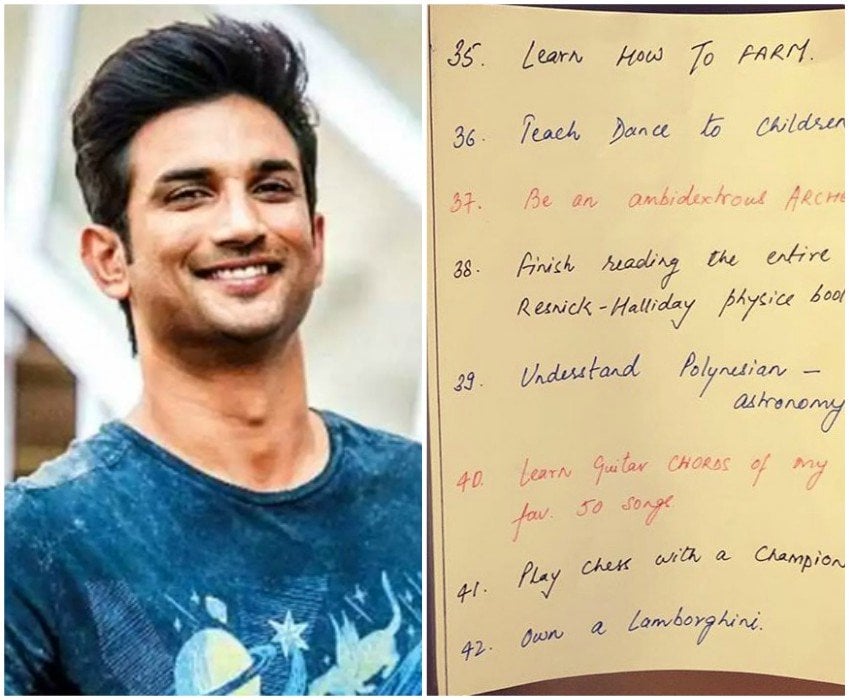 35. Learn HOW TO FARM.
36. Teach Dance to Children
37. Be an ambidextrous ARCHE
38. Finish reading the entire
Resnick-Halliday physics boo
39. Understand Polynesian -
astronomy
40. Learn Guitar CHORDS of my
fav. 50 songs.
41. Play Chess with a Champion
42. Own a Lamborghini.